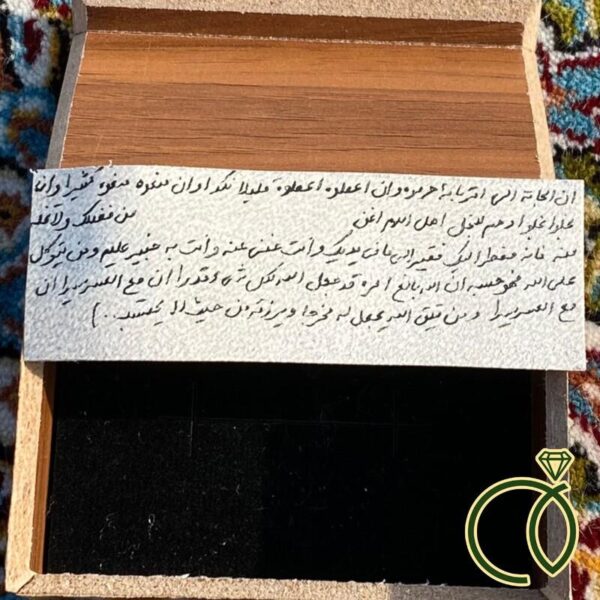 ان الحاجة الى اقربائه احرموه وان اعطوه اعطوه قليلا نكدا وان منعوه منعوه كثيرا وان
بخلوا اهل اللهم اغن من فضلك ولا
منه فانه مضطر اليك فقير الى ما في يديك وانت غني عنه وأنت به خبير عليم ومن يتوكل
على الله فهو حسبه ان الله بالغ امره قد جعل الله لكل شيء قدرا ان مع العسر يسرا ان
مع العسر يسرا ومن يتق الله يجعل له مخرجا ويرزقه من حيث لا يحتسب ..)